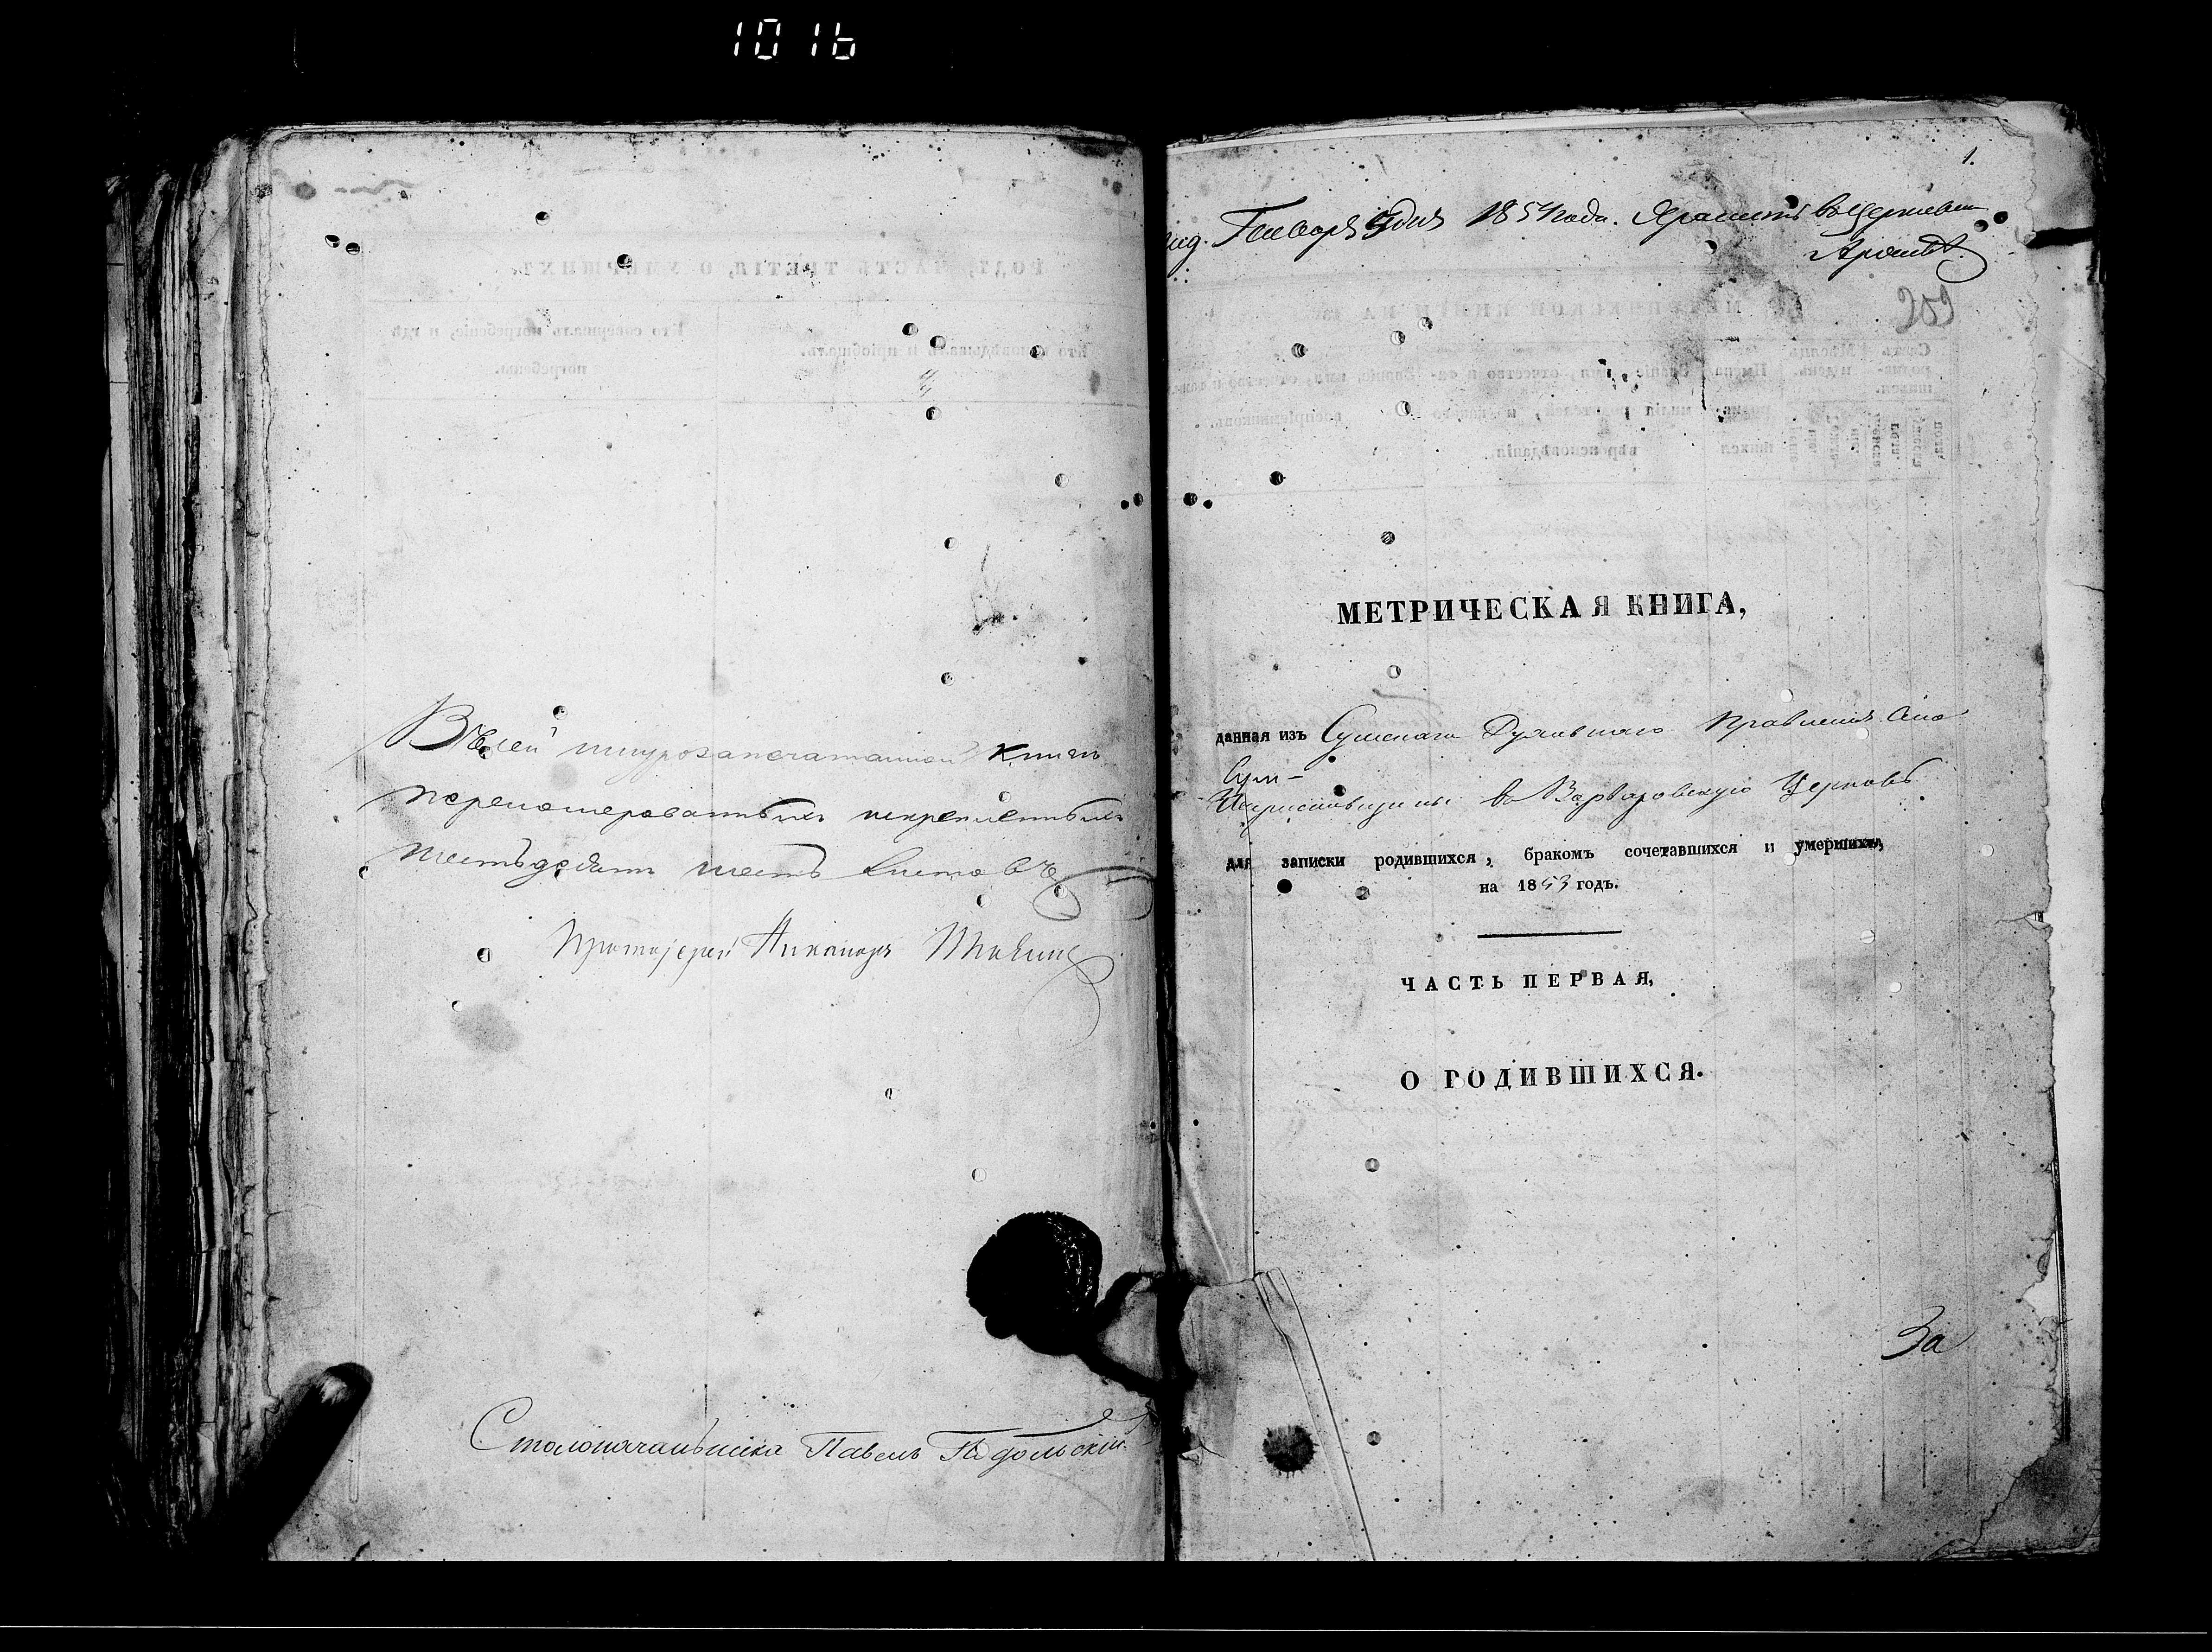 1016
Въ сей шнурозапечатанной книгѣ
переномерованныхъ и скрепленныхъ
шестьдесятъ шесть листовъ
Протоіерей Никаноръ
Столоначальника Павелъ Подольскій
1.
Генваря 9 дня 1854 года. Хранить въ Церковномъ
Архивѣ.
209
МЕТРИЧЕСКАЯ КНИГА,
данная изъ Сумскаго Духовнаго Правленія
Сум-
въ Варваровскую Церковь
для записки родившихся, бракомъ сочетавшихся и умершихъ,
на 1853 годъ.
ЧАСТЬ ПЕРВАЯ,
О РОДИВШИХСЯ.
За